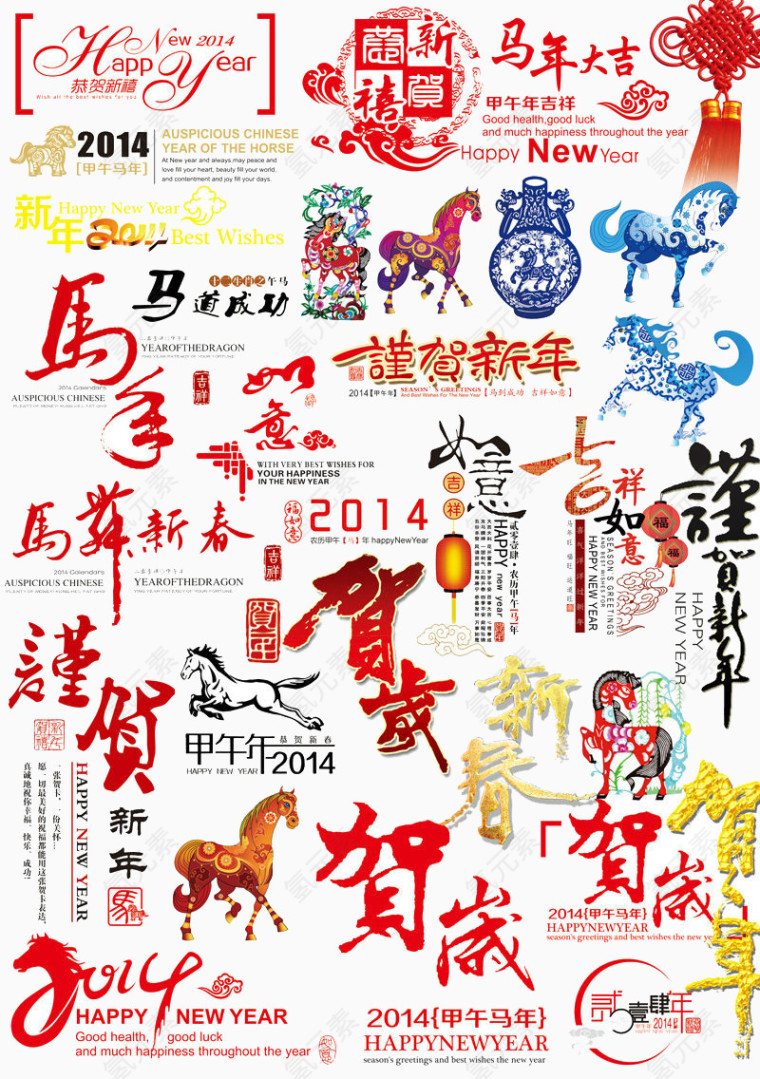 New 2014
Happy Year
恭贺新禧
Wish all the best wishes for you
恭賀新禧
马年大吉
甲午年吉祥
Good health,good luck
and much happiness throughout the year
Happy New Year
2014
[甲午马年]
AUSPICIOUS CHINESE
YEAR OF THE HORSE
At New year and always,may peace and
love fill your heart, beauty fill your world,
and contentment and joy fill your days.
新年
Happy New Year
2014 Best Wishes
馬年
十二生肖之午马
马道成功
YEAROFTHEDRAGON
2014 Calendars
AUSPICIOUS CHINESE
吉祥
如意
謹賀新年
2014【甲午年】
SEASON'S GREETINGS
And Best Wishes For The New Year
【马到成功 吉祥如意】
WITH VERY BEST WISHES FOR
YOUR HAPPINESS
IN THE NEW YEAR
如意
吉祥
HAPPY new year
贰零壹肆·农历甲午【马】年
吉祥如意
福
福
马年旺 福旺 运道旺
喜气洋洋过新年
HAPPY NEW YEAR
SEASON'S GREETINGS
AND BEST WISHES FOR
謹賀新年
HAPPY
NEW YEAR
馬舞新春
2014 Calendars
AUSPICIOUS CHINESE
YEAROFTHEDRAGON
吉祥
福如意
2014
农历甲午【马】年 happyNewYear
賀年
賀歲
謹賀
新年
HAPPY NEW YEAR
一张贺卡，一份关怀…
愿一切最美好的祝福都能用这张贺卡表达，
真诚地祝你幸福、快乐、成功！
馬
甲午年
恭贺新春
HAPPY NEW YEAR
2014
新春
賀歲
賀歲
2014{甲午马年}
HAPPYNEWYEAR
season's greetings and best wishes the new year
賀年
2014
HAPPY NEW YEAR
Good health, good luck
and much happiness throughout the year
2014{甲午马年}
HAPPYNEWYEAR
season's greetings and best wishes the new year
贰〇壹肆年
2014